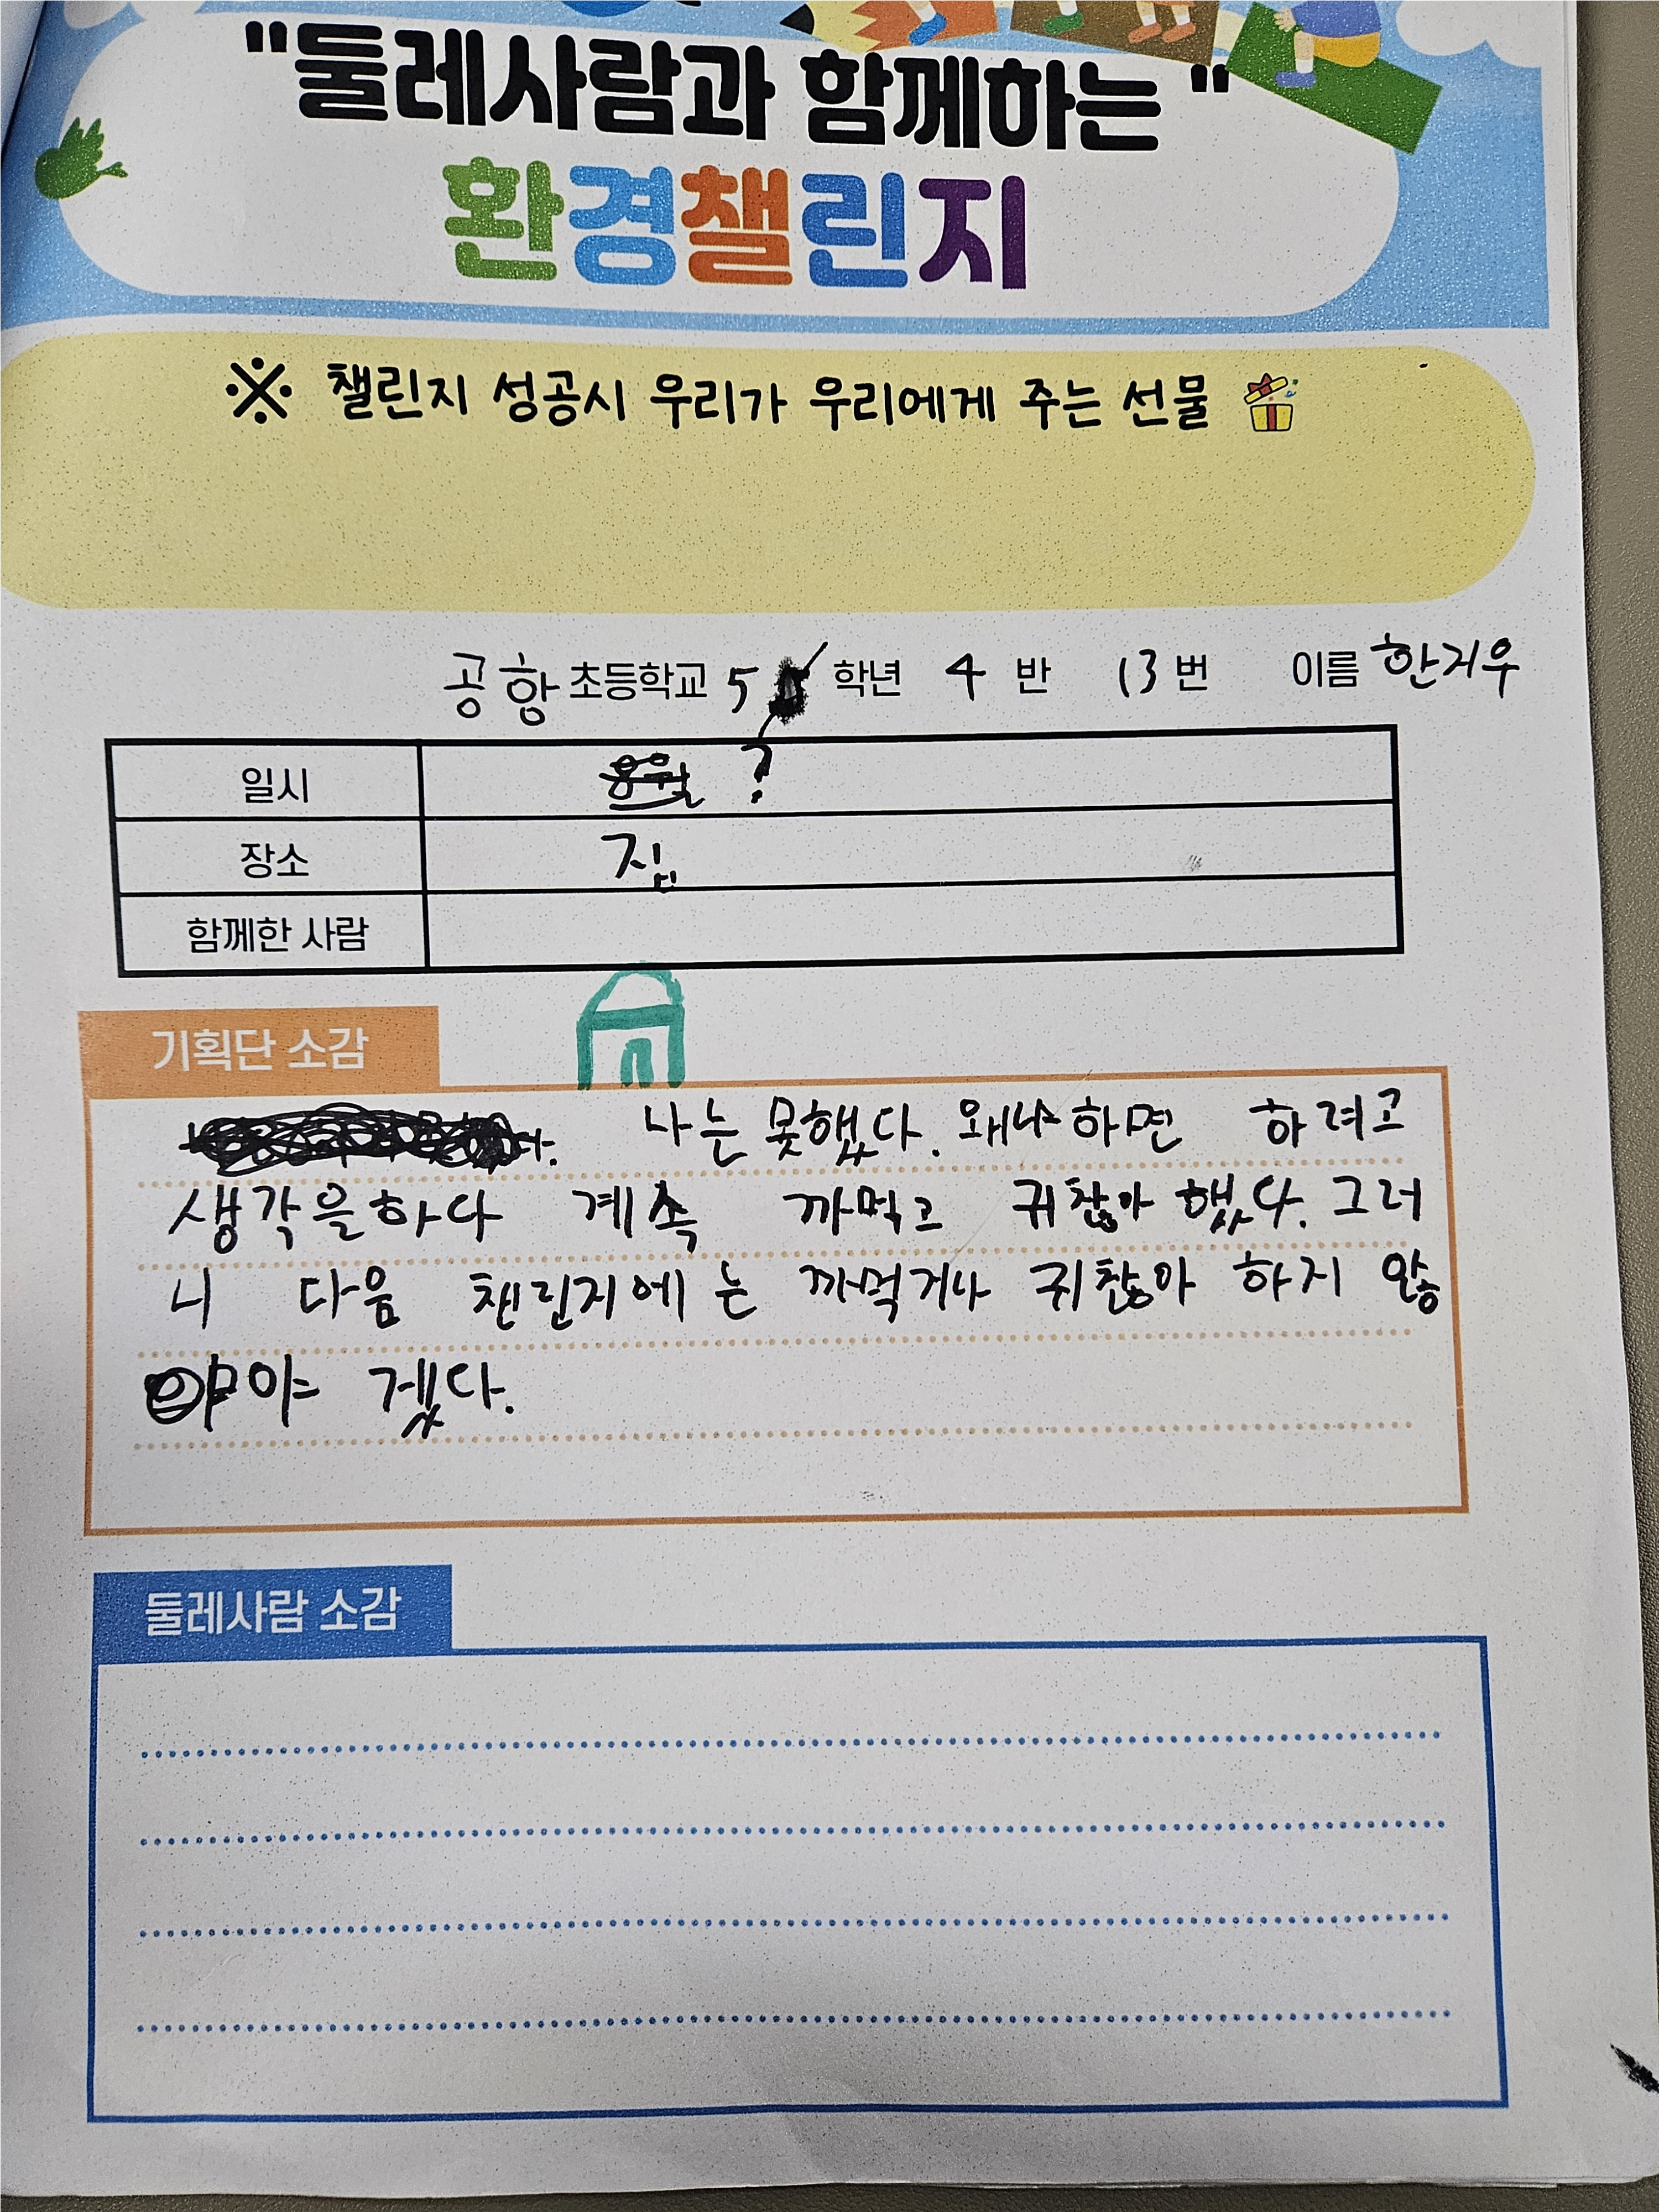 "둘레사람과 함께하는 "
환경챌린지
※ 챌린지 성공시 우리가 우리에게 주는 선물
공항 초등학교 5 학년 4 반 13 번 이름 한지우
일시 ?
장소 집
함께한 사람
기획단 소감
나는 못했다. 왜냐하면 하려고
생각을하다 계속 까먹고 귀찮아 했다. 그러
니 다음 챈린지에는 까먹거나 귀찮아 하지 않
아야 겠다.
둘레사람 소감